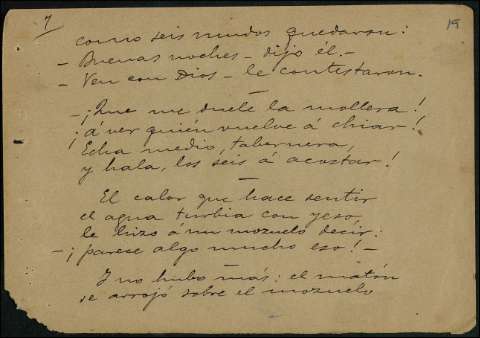 7
19
como seis mudos quedaron:
- Buenas noches - dijo él. -
- Ven con Dios - le contestaron.
- ¡Que me duele la mollera!
¡á ver quién vuelve á chiar!
Echa medio, tabernera,
y hala, los seis á acostar!
El calor que hace sentir
el agua turbia con yeso,
le hizo á un mozuelo decir:
- ¡parese algo mucho eso! -
Y no hubo más: el matón
se arrojó sobre el mozuelo